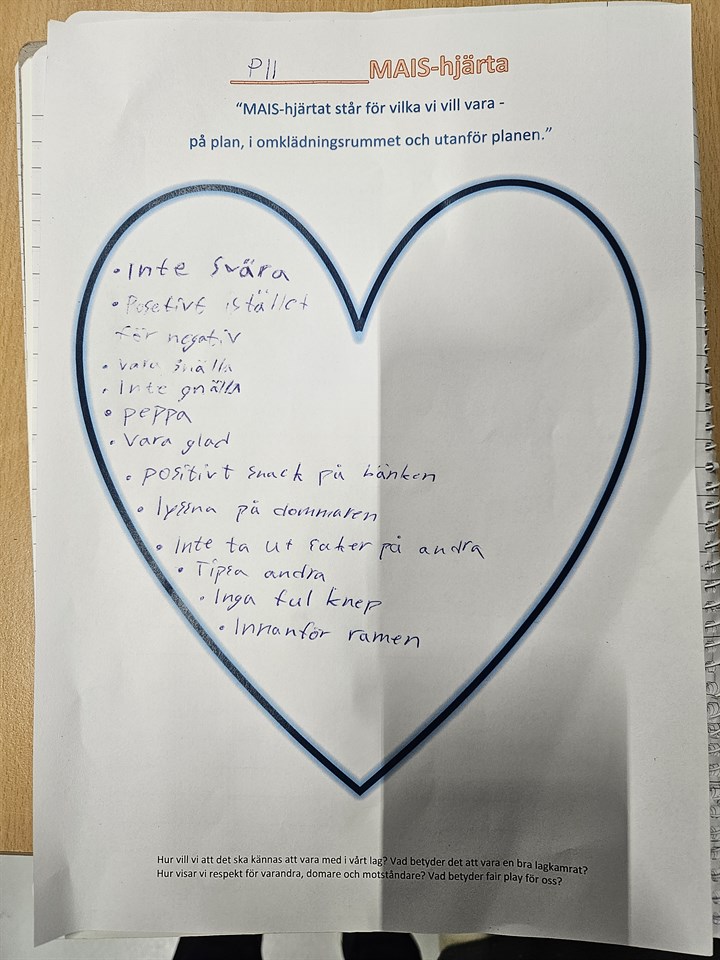 P11 MAIS-hjärta
“MAIS-hjärtat står för vilka vi vill vara -
på plan, i omklädningsrummet och utanför planen.”
• Inte svära
• Posetivt istället
för negativ
• Vara snälla
• Inte gnälla
• peppa
• Vara glad
• positivt snack på bänken
• lyssna på dommaren
• Inte ta ut saker på andra
• Tipsa andra
• Inga ful knep
• Innanför ramen
Hur vill vi att det ska kännas att vara med i vårt lag? Vad betyder det att vara en bra lagkamrat?
Hur visar vi respekt för varandra, domare och motståndare? Vad betyder fair play för oss?